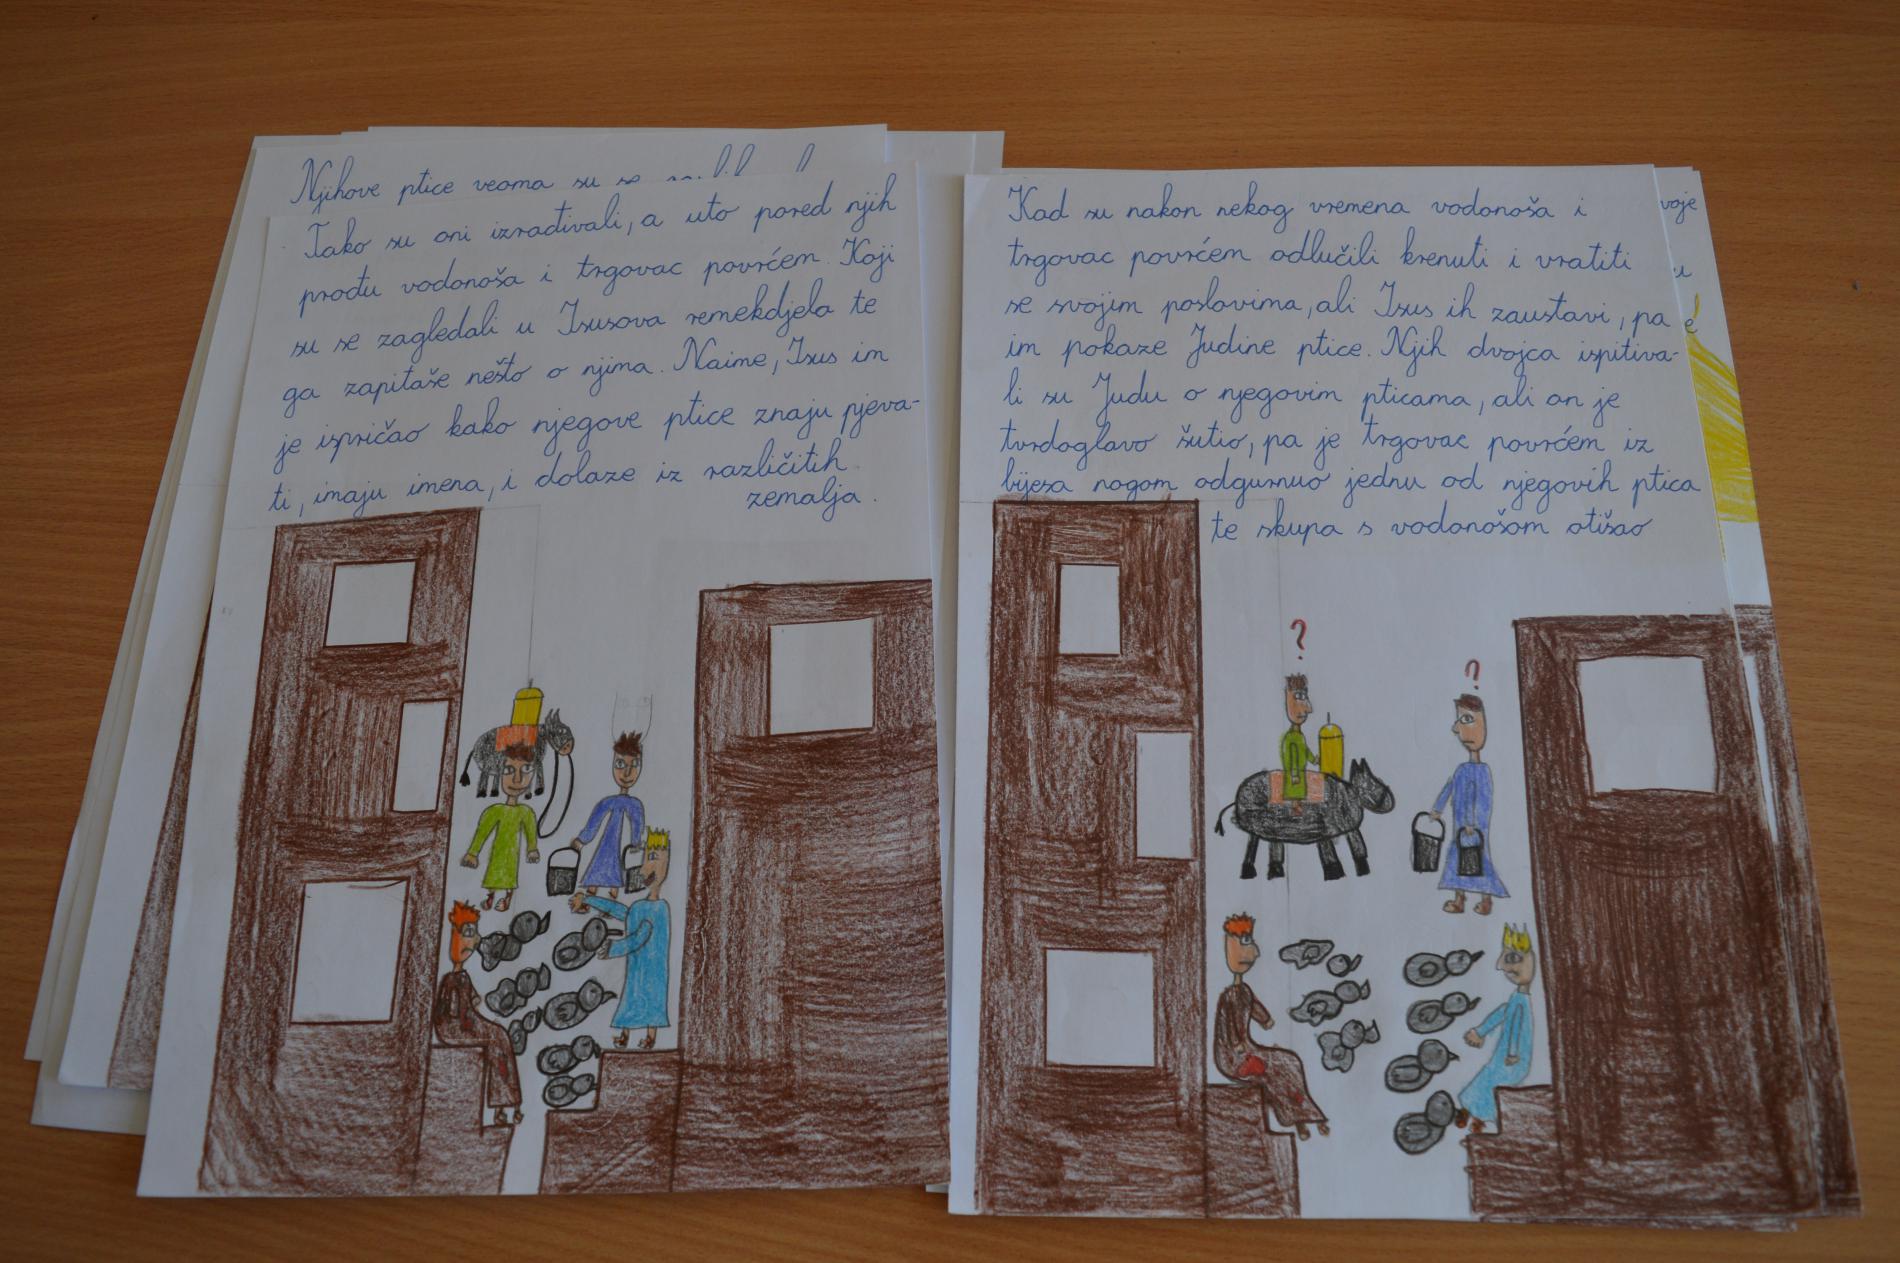 Njihove ptice veoma su se
Tako su oni izrađivali, a uto pored njih
prođu vodonoša i trgovac povrćem. Koji
su se zagledali u Isusova remekdjela te
ga zapitaše nešto o njima. Naime, Isus im
je ispričao kako njegove ptice znaju pjeva-
ti, imaju imena, i dolaze iz različitih
zemalja.
Kad su nakon nekog vremena vodonoša i
trgovac povrćem odlučili krenuti i vratiti
se svojim poslovima, ali Isus ih zaustavi, pa
im pokaze Judine ptice. Njih dvojca ispitiva-
li su Judu o njegovim pticama, ali on je
tvrdoglavo šutio, pa je trgovac povrćem iz
bijesa nogom odgurnuo jednu od njegovih ptica
te skupa s vodonošom otišao
?
?